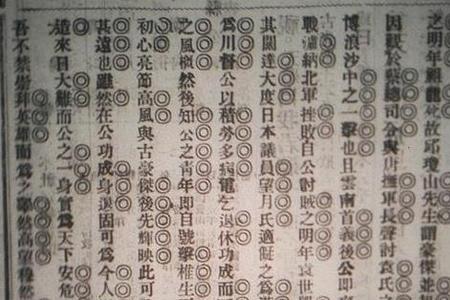 之明年祖龍死故邱瓊山先生謂豪傑並
因緩於蔡總司令與唐撫軍長聲討袁氏
博浪沙中之一擊也且雲南首義後公即
戰瀘納北軍挫敗自公討賊之明年袁世
其闊達大度日本議員望月氏適之爲
爲川督公以積勞多病電乞退休功成而
之風概然後知公之青年即自號擊椎生
初心亮節高風與古豪傑後先輝映此可
甚遠也雖然在公功成身退固可爲今人
來日大難而公之一身實爲天下安危
吾不禁崇拜英雄而爲之顒然高望穆然